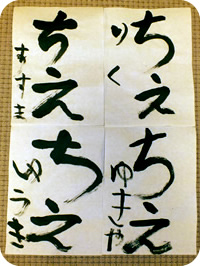 ちえ
りく
ちえ
あすま
ちえ
ゆきや
ちえ
ゆうき